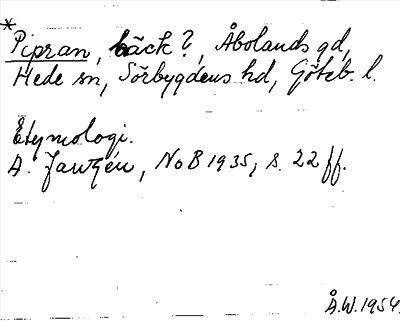 *
Pipran, bäck?, Åbolands gd,
Hede sn, Sörbygdens hd, Göteb. l.
Etymologi.
A. Janzén, NoB 1935, s. 22 ff.
Å.W. 1954.